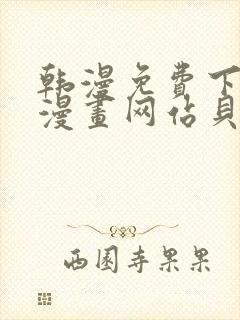 韩漫免費下
漫畫网佔貝
西園寺果果